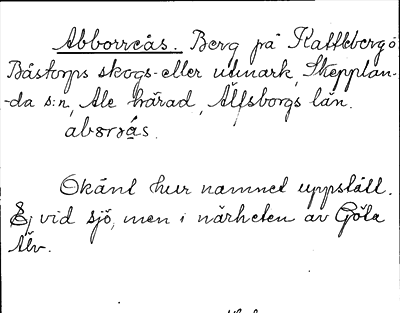 Abborreås. Berg på Kattleberg o
Båstorps skogs- eller utmark, Skepplan-
-da s:n, Ale härad, Älfsborgs län.
Okänt hur namnet uppstått.
Ej vid sjö, men i närheten av Göta
Älv.